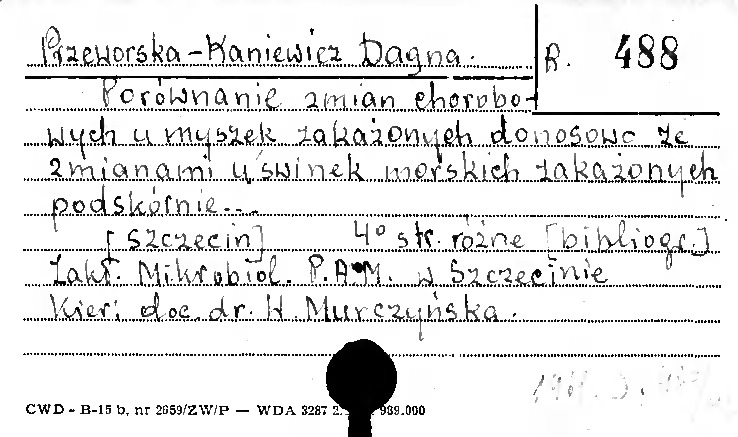 Przeworska-Kaniewicz Dagna.
R. 488
Porównanie zmian chorobo-
wych u myszek zakażonych donosowo ze
zmianami u świnek morskich zakażonych
podskórnie...
[Szczecin] 4° str. różne [bibliogr.]
Zakł. Mikrobiol. P.A.M. w Szczecinie
Kier: doc. dr. H. Murczyńska.
CWD - B-15 b, nr 2659/ZW/P — WDA 3287 2. 989.000